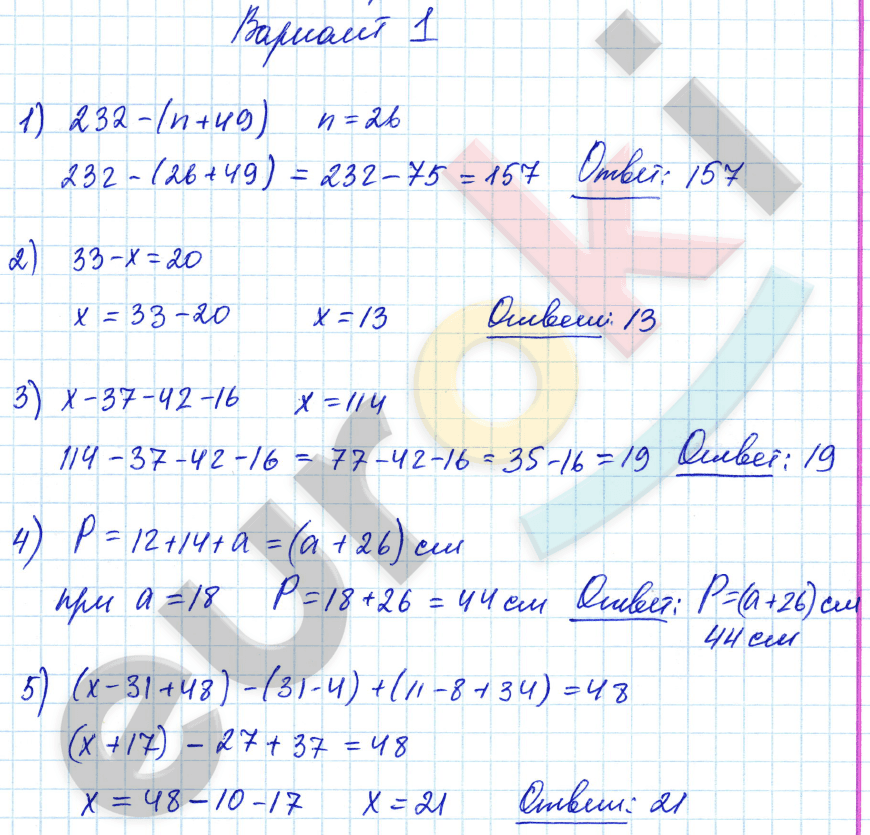 Вариант 1
1) 232-(n+49) n=26
232-(26+49) = 232-75 =157 Ответ: 157
2) 33-x=20
x = 33-20 x=13 Ответ: 13
3) x-37-42-16 x=114
114-37-42-16 = 77-42-16 = 35-16 =19 Ответ: 19
4) P = 12+14+a =(a+26) см
при a=18 P=18+26 = 44 см Ответ: P=(a+26) см
44 см
5) (x-31+48)-(31-4)+(11-8+34)=48
(x+17) - 27+37 =48
x =48-10-17 x=21 Ответ: 21
euroki